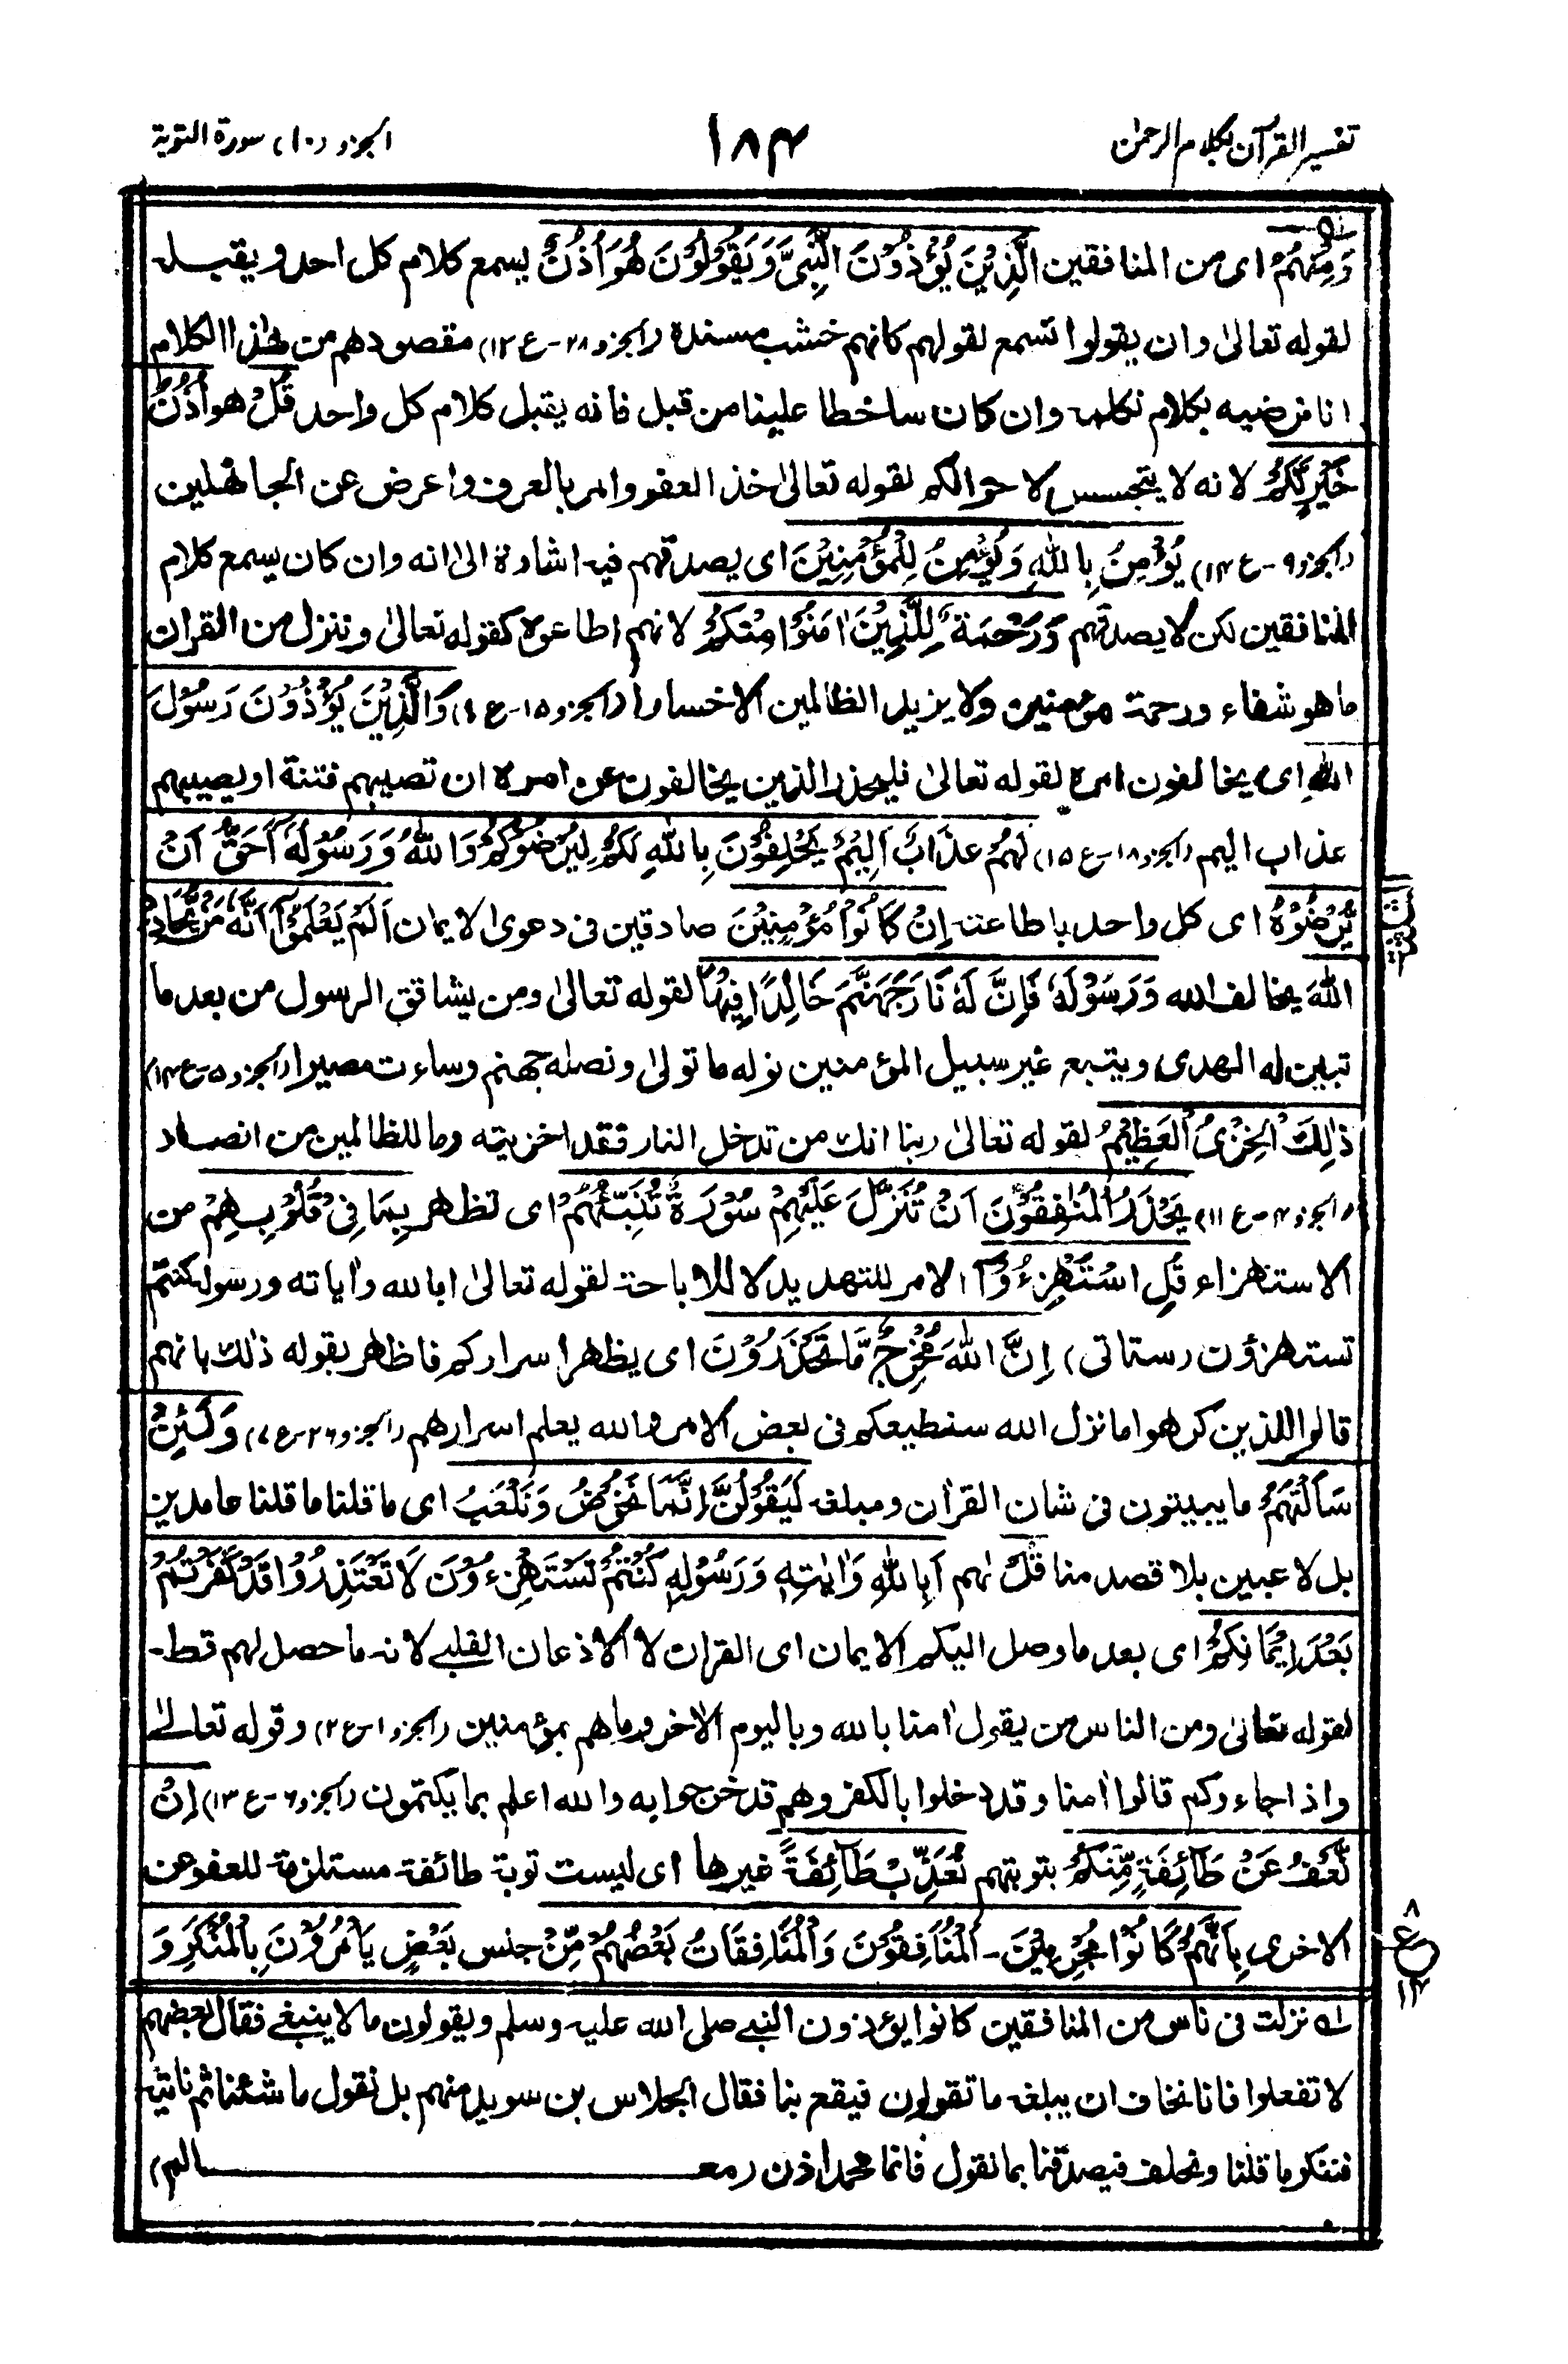 تفسير القرآن بكلام الرحمٰن
١٨٤
الجزو (١٠) سورة التوبة
وَمِنْهُمُ اى من المنافقين الَّذِيْنَ يُؤْذُوْنَ النَّبِىَّ وَيَقُوْلُوْنَ هُوَ اُذُنٌ يسمع كلام كل احد ويقبله
لقوله تعالىٰ وان يقولوا تسمع لقولهم كانهم خشب مسندة (الجزو ٢٨-ع١٣) مقصودهم من هٰذا الكلام
انا نرضيه بكلام نكلمه وان كان ساخطا علينا من قبل فانه يقبل كلام كل واحد قُلْ هو اُذُنُ
خَيْرٍ لَّكُمْ لانه لا يتجسس لاحوالكم لقوله تعالىٰ خذ العفو وامر بالعرف واعرض عن الجاهلين
(الجزو ٩-ع١٤) يُؤْمِنُ بِاللّٰهِ وَيُؤْمِنُ لِلْمُؤْمِنِيْنَ اى يصدقهم فيه اشارة الىٰ انه وان كان يسمع كلام
المنافقين لكن لا يصدقهم وَرَحْمَةٌ لِلَّذِيْنَ اٰمَنُوْا مِنْكُمْ لانهم اطاعوه كقوله تعالىٰ وننزل من القراٰن
ما هو شفاء ورحمة مؤمنين ولا يزيد الظالمين الاخسارا (الجزو ١٥-ع٩) وَالَّذِيْنَ يُؤْذُوْنَ رَسُوْلَ
اللّٰهِ اى يخالفون امره لقوله تعالىٰ فليحذر الذين يخالفون عن امره ان تصيبهم فتنة او يصيبهم
عذاب اليم (الجزو ١٨-ع١٥) لَهُمْ عَذَابٌ اَلِيْمٌ يَحْلِفُوْنَ بِاللّٰهِ لَكُمْ لِيُرْضُوْكُمْ وَاللّٰهُ وَرَسُوْلُهٗ اَحَقُّ اَنْ
يُّرْضُوْهُ اى كل واحد باطاعته اِنْ كَانُوْا مُؤْمِنِيْنَ صادقين فى دعوى الايمان اَلَمْ يَعْلَمُوْٓا اَنَّهٗ مَنْ يُّحَادِدِ
اللّٰهَ يخالف الله وَرَسُوْلَهٗ فَاِنَّ لَهٗ نَارَ جَهَنَّمَ خَالِدًا فِيْهَا لقوله تعالىٰ ومن يشاقق الرسول من بعد ما
تبين له الهدى ويتبع غير سبيل المؤمنين نوله ما تولىٰ ونصله جهنم وساءت مصيرا (الجزو ٥-ع١٤)
ذٰلِكَ الْخِزْىُ الْعَظِيْمُ لقوله تعالىٰ ربنا انك من تدخل النار فقد اخزيته وما للظالمين من انصار
(الجزو ٤-ع١١) يَحْذَرُ الْمُنٰفِقُوْنَ اَنْ تُنَزَّلَ عَلَيْهِمْ سُوْرَةٌ تُنَبِّئُهُمْ اى تظهر بِمَا فِىْ قُلُوْبِهِمْ من
الاستهزاء قُلِ اسْتَهْزِءُوْٓا الامر للتهديد لا للاباحة لقوله تعالىٰ ابالله واٰياته ورسوله كنتم
تستهزؤن (ستاتى) اِنَّ اللّٰهَ مُخْرِجٌ مَّا تَحْذَرُوْنَ اى يظهر اسراركم فاظهر بقوله ذٰلك بانهم
قالوا للذين كرهوا ما نزل الله سنطيعكم فى بعض الامر والله يعلم اسرارهم (الجزو ٢٦-ع٧) وَلَئِنْ
سَاَلْتَهُمْ ما يبيتون فى شان القراٰن ومبلغه لَيَقُوْلُنَّ اِنَّمَا كُنَّا نَخُوْضُ وَنَلْعَبُ اى ما قلنا ما قلنا عامدين
بل لاعبين بلا قصد منا قُلْ لهم اَبِاللّٰهِ وَاٰيٰتِهٖ وَرَسُوْلِهٖ كُنْتُمْ تَسْتَهْزِءُوْنَ لَا تَعْتَذِرُوْا قَدْ كَفَرْتُمْ
بَعْدَ اِيْمَانِكُمْ اى بعد ما وصل اليكم الايمان اى القراٰن لا الاذعان القلبے لانه ما حصل لهم قط۔
لقوله تعالىٰ ومن الناس من يقول اٰمنا بالله وباليوم الاٰخر وما هم بمؤمنين (الجزو ١-ع٢) وقوله تعالےٰ
واذا جاءوكم قالوا اٰمنا وقد دخلوا بالكفر وهم قد خرجوا به والله اعلم بما يكتمون (الجزو ٦-ع١٣) اِنْ
نَّعْفُ عَنْ طَآئِفَةٍ مِّنْكُمْ بتوبتهم نُعَذِّبْ طَآئِفَةً غيرها اى ليست توبة طائفة مستلزمة للعفو عن
الاخرى بِاَنَّهُمْ كَانُوْا مُجْرِمِيْنَ۔ اَلْمُنَافِقُوْنَ وَالْمُنَافِقَاتُ بَعْضُهُمْ مِّنْ جنس بَعْضٍ يَاْمُرُوْنَ بِالْمُنْكَرِ وَ
٨
ع
١٤
لـه نزلت فى ناس من المنافقين كانوا يؤذون النبے صلى الله عليه وسلم ويقولون ما لا ينبغے فقال بعضهم
لا تفعلوا فانا نخاف ان يبلغه ما تقولون فيقع بنا فقال الجلاس بن سويد منهم بل نقول ما شئنا ثم ناتيه
فننكر ما قلنا ونحلف فيصدقنا بما نقول فانما محمد اذن (معالم)